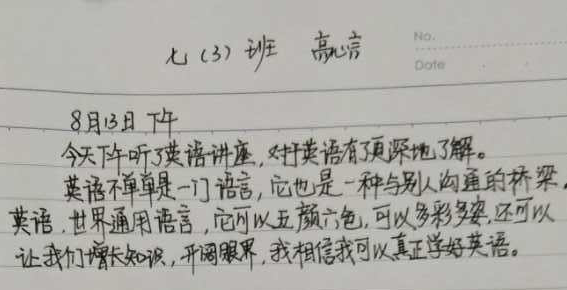 七（3）班 高心言
No.
Date
8月13日 下午
今天下午听了英语讲座，对于英语有了更深地了解。
英语不单单是一门语言，它也是一种与别人沟通的桥梁，
英语，世界通用语言，它可以五颜六色，可以多彩多姿，还可以
让我们增长知识，开阔眼界，我相信我可以真正学好英语。